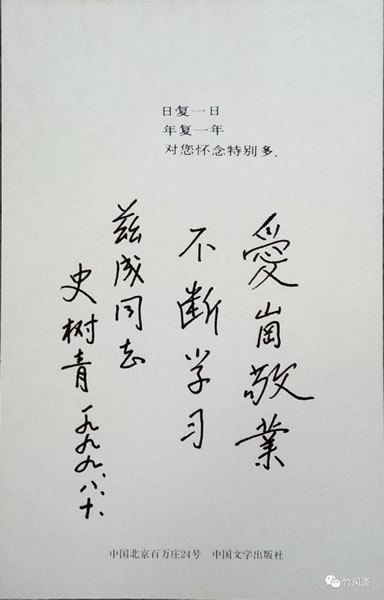 日复一日
年复一年
对您怀念特别多.
愛崗敬業
不断学习
兹成同志
史树青 一九九九.八.十.
中国北京百万庄24号 中国文学出版社
竹风斋